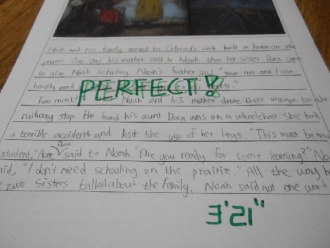 Noah and his family moved to Colorado and built a house on the
prairie. One day his mother said to Noah that her sister Dora came
to give Noah schooling. Noah's father said "give me and I can
hardly
PERFECT!!
Two Noah and his mother drove their wagon to the
railway stop. He found his aunt Dora was on a wheelchair she had
a terrible accident and lost the use of her legs. "This must be my
student," Aunt Dora said to Noah. "Are you ready for some learning?" No
said, "I don't need schooling on the prairie." All the way h
two sisters talked about the family. Noah said not one wor
3'15"